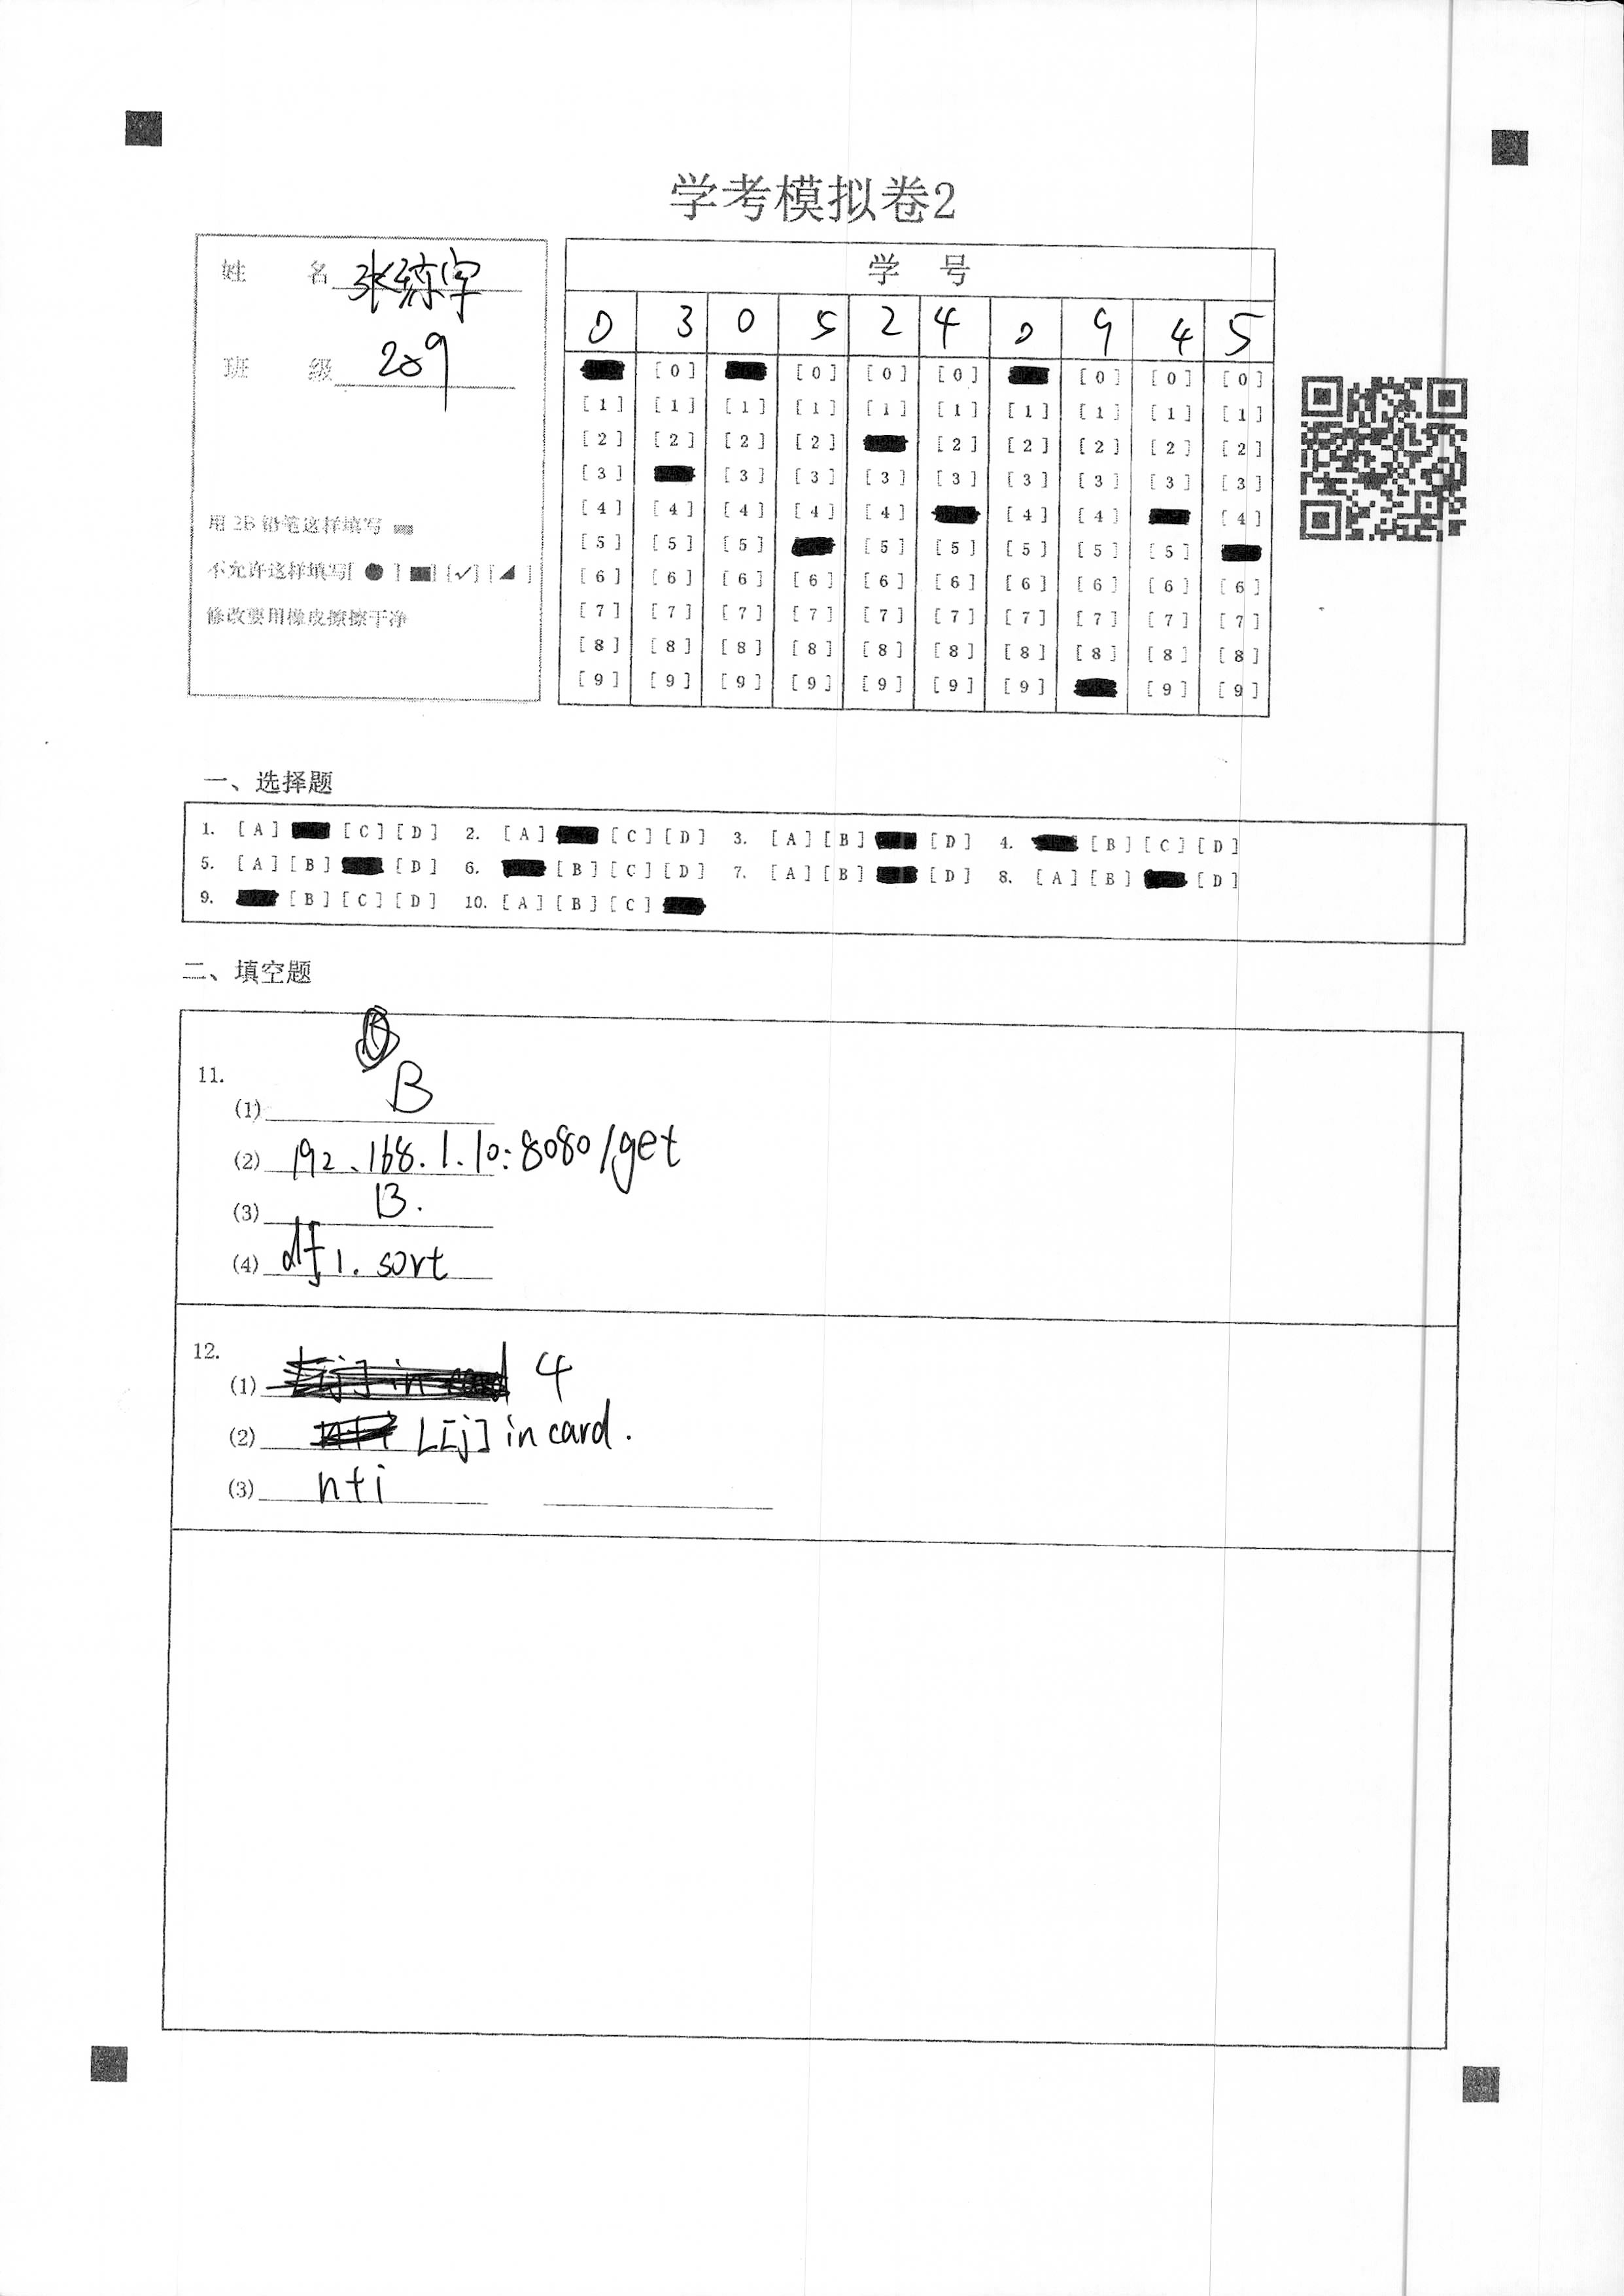 学考模拟卷2
姓 名 张 宇
班 级 209
用 2B 铅笔这样填写
不允许这样填写[ ● ] [■] [✓] [◢ ]
修改要用橡皮擦擦干净
学 号
0 3 0 5 2 4 0 9 4 5
[0] [0] [0] [0] [0] [0] [0]
[1] [1] [1] [1] [1] [1] [1] [1] [1] [1]
[2] [2] [2] [2] [2] [2] [2] [2] [2]
[3] [3] [3] [3] [3] [3] [3] [3] [3]
[4] [4] [4] [4] [4] [4] [4] [4]
[5] [5] [5] [5] [5] [5] [5] [5]
[6] [6] [6] [6] [6] [6] [6] [6] [6] [6]
[7] [7] [7] [7] [7] [7] [7] [7] [7] [7]
[8] [8] [8] [8] [8] [8] [8] [8] [8] [8]
[9] [9] [9] [9] [9] [9] [9] [9] [9]
一、选择题
1. [A] [C] [D] 2. [A] [C] [D] 3. [A] [B] [D] 4. [B] [C] [D]
5. [A] [B] [D] 6. [B] [C] [D] 7. [A] [B] [D] 8. [A] [B] [D]
9. [B] [C] [D] 10. [A] [B] [C]
二、填空题
11.
(1) B
(2) 192.168.1.10:8080/get
(3) B.
(4) df1.sort
12.
(1) 4
(2) L[j] in card.
(3) n+i